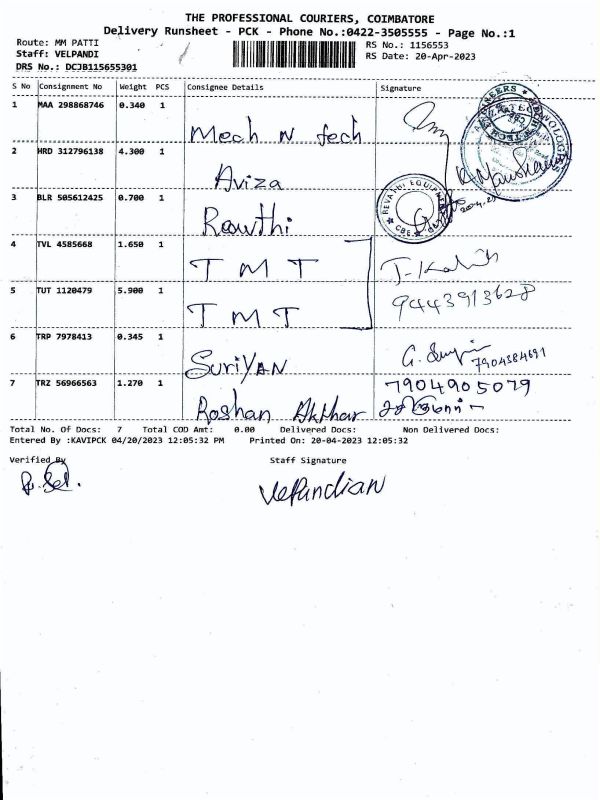 THE PROFESSIONAL COURIERS, COIMBATORE
Delivery Runsheet - PCK - Phone No.:0422-3505555 - Page No.:1
Route: MM PATTI
RS No.: 1156553
Staff: VELPANDI
RS Date: 20-Apr-2023
DRS No.: DCJB115655301
S No Consignment No Weight PCS Consignee Details Signature
1 MAA 298868746 0.340 1
Mech N tech
2 HRD 312796138 4.300 1
Aviza
3 BLR 505612425 0.700 1
REVATHI EQUIPMENT
CBE
4 TVL 4585668 1.650 1
TMT
5 TUT 1120479 5.900 1
9443913628
TMT
6 TRP 7978413 0.345 1
SuriYAN
7904384691
7 TRZ 56966563 1.270 1
7904905079
Roshan Akthar
Total No. Of Docs: 7 Total COD Amt: 0.00 Delivered Docs: Non Delivered Docs:
Entered By :KAVIPCK 04/20/2023 12:05:32 PM Printed On: 20-04-2023 12:05:32
Verified By Staff Signature
VelPandian